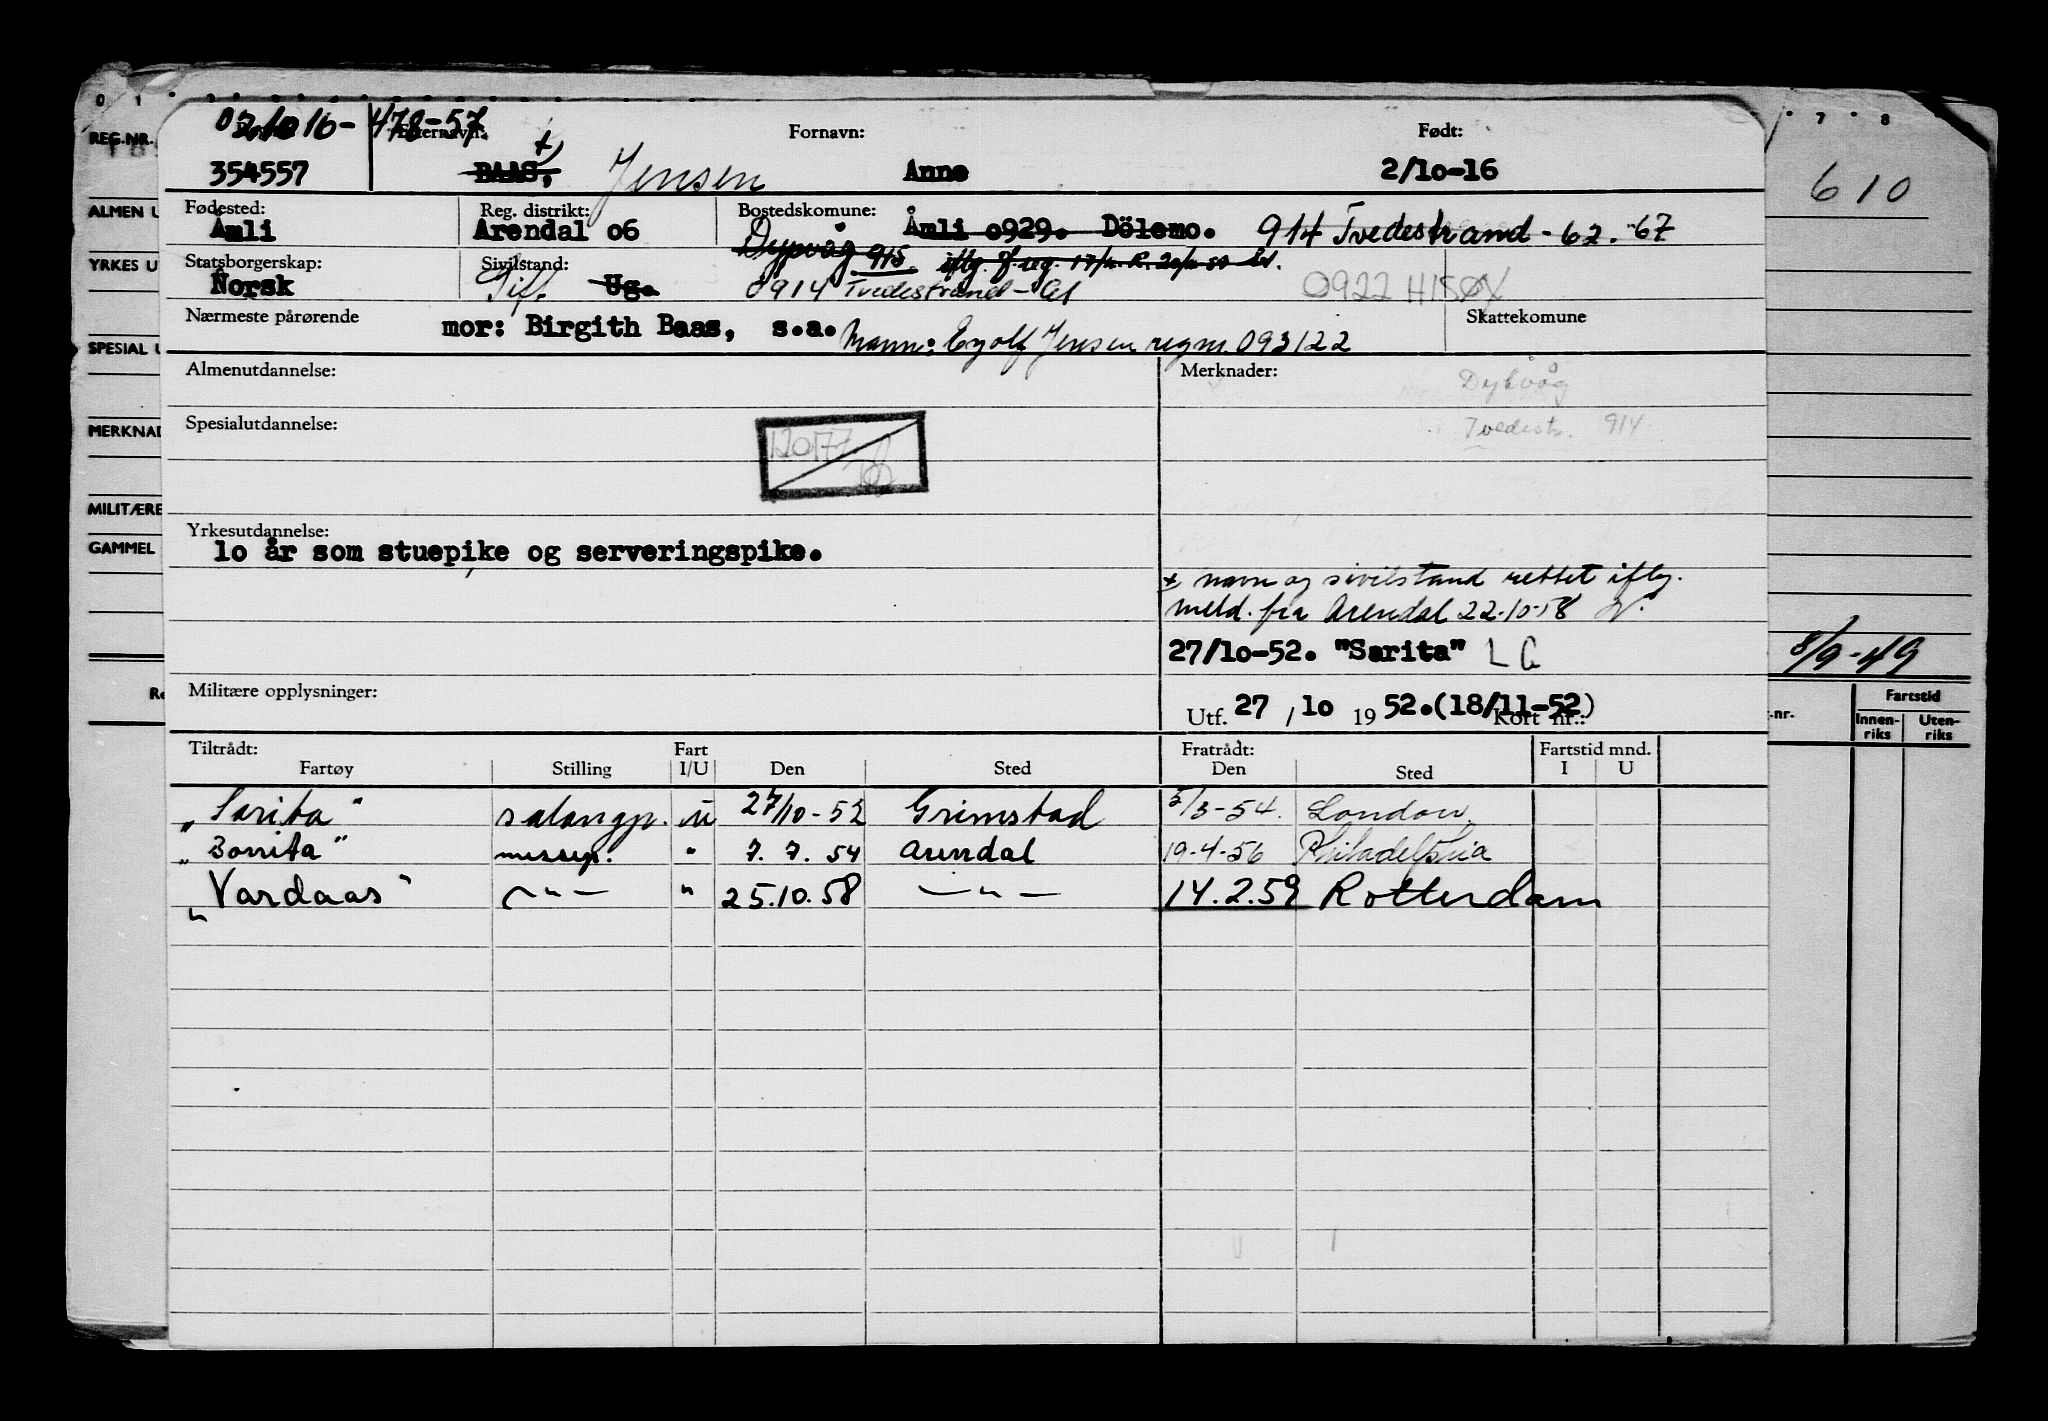 0 1 7 8
REG.NR. 021016-478-57 Etternavn: Fornavn: Født:
354557 BAAS, x) Jensen Anne 2/10-16
610
ALMEN U Fødested: Reg. distrikt: Bostedskomune:
Åmli Arendal o6 Åmli o929. Dölemo. 914 Tvedestrand - 62. -67
Dypvåg 915 iflg. f. reg.
YRKES U Statsborgerskap: Sivilstand:
Norsk Gif. Ug. 0914 Tvedestrand - 0922 HISØY
Nærmeste pårørende mor: Birgith Baas, s.a. Mann: Eyolf Jensen reg nr. 093122 Skattekomune
SPESIAL U
Almenutdannelse: Merknader: Dybvåg
Spesialutdannelse: Tvedestr. 914
MERKNAD
120177
MILITÆRE
Yrkesutdannelse:
GAMMEL
lo år som stuepike og serveringspike.
x navn og sivilstand rettet iflg.
meld. fra Arendal 22-10-58
27/lo-52. "Sarita" L
8/9-49
Militære opplysninger:
Utf. 27 / lo 19 52.(18/11-52) Kort nr.:
Re -nr. Fartstid
Innen-riks Uten-riks
Tiltrådt: Fart Fratrådt: Fartstid mnd.
Fartøy Stilling I/U Den Sted Den Sted I U
"Sarita" salongp. u 27/10-52 Grimstad 5/3-54. London
"Bonita" messep. " 7. 7. 54 Arendal 19-4-56 Philadelphia
"Vardaas" — " — " 25.10.58 — " — 14.2.59 Rotterdam